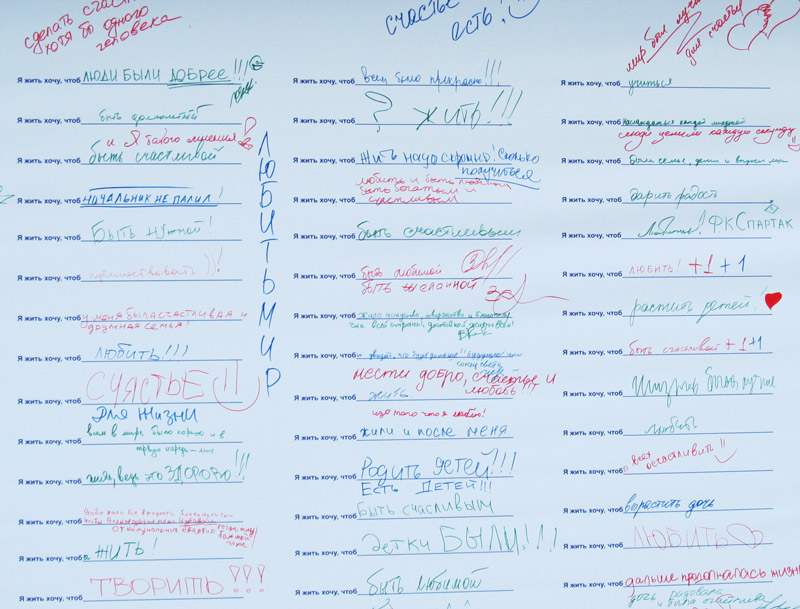 сделать
хотя бы одного
человека
Я жить хочу, чтоб люди были добрее!!!
Я жить хочу, чтоб быть
и я такого мнения!
Я жить хочу, чтоб быть счастливой
Я жить хочу, чтоб начальник не палил!
Я жить хочу, чтоб быть нужной!
Я жить хочу, чтоб путешествовать!!
Я жить хочу, чтоб у меня была счастливая и
дружная семья!
Я жить хочу, чтоб любить!!!
Я жить хочу, чтоб счастье!!
для жизни
Я жить хочу, чтоб всем в мире было хорошо и в
Я жить хочу, чтоб жить, ведь это здорово!!!
Я жить хочу, чтоб
Я жить хочу, чтоб жить!
Я жить хочу, чтоб творить!!!
ЛЮБИТЬ МИР
счастье
есть!
Я жить хочу, чтоб всем было прекрасно!!!
Я жить хочу, чтоб ? жить!!!
Я жить хочу, чтоб жить надо скромно! Сколько
получиться
любить и быть
Я жить хочу, чтоб быть богатым и
счастливым
Я жить хочу, чтоб быть счастливым
Я жить хочу, чтоб быть любимой
быть желанной
Я жить хочу, чтоб
Я жить хочу, чтоб
нести добро, счастье и
любовь!!!
Я жить хочу, чтоб жить
Я жить хочу, чтоб жили и после меня
Я жить хочу, чтоб родить детей!!!
Есть детей!!!
Я жить хочу, чтоб быть счастливым
Я жить хочу, чтоб детки были!!!
Я жить хочу, чтоб быть любимой
мир был
для счастья
Я жить хочу, чтоб учиться
Я жить хочу, чтоб наслаждаться каждой минутой
люди ценили каждую секунду
Я жить хочу, чтоб была семья, дети и
Я жить хочу, чтоб дарить радость
Я жить хочу, чтоб любить! ФК Спартак
Я жить хочу, чтоб любить! +1 +1
Я жить хочу, чтоб растить детей!
Я жить хочу, чтоб быть счастливой +1 +1
Я жить хочу, чтоб
Я жить хочу, чтоб любить
Я жить хочу, чтоб всех осчастливить!!
Я жить хочу, чтоб вырастить дочь
Я жить хочу, чтоб любить
Я жить хочу, чтоб дальше продолжалась жизнь
дочь радовала
и была